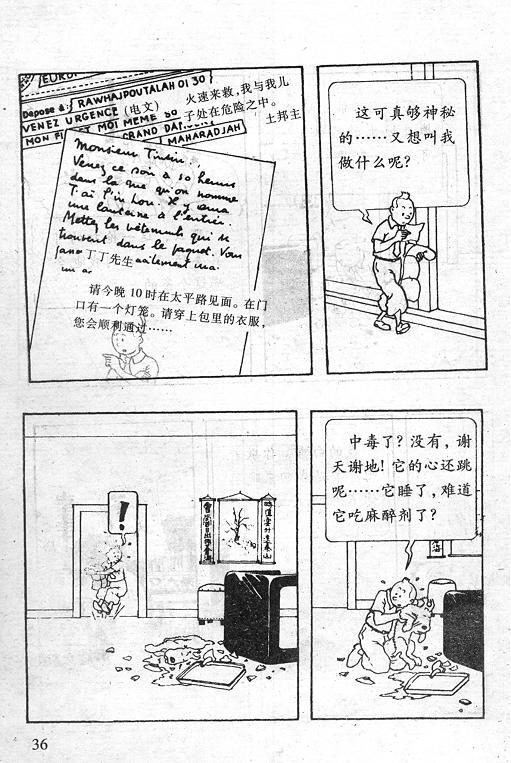 EURO
Déposé à: RAWHAJPOUTALAH 01 30
VENEZ URGENCE
(电文)
火速来救,我与我儿
子处在危险之中。
土邦主
MON FI ET MOI MEME
GRAND DAN
MAHARADJAH
Monsieur Tintin,
Venez ce soir à 10 heures
dans la rue qu'on nomme
T'ai P'in Lou. Il y aura
une lanterne à l'entrée.
Mettez les vêtements qui se
trouvent dans le paquet. Vous
丁丁先生
请今晚10时在太平路见面。在门
口有一个灯笼。请穿上包里的衣服,
您会顺利通过……
这可真够神秘
的……又想叫我
做什么呢?
!
中毒了?没有,谢
天谢地!它的心还跳
呢……它睡了,难道
它吃麻醉剂了?
36